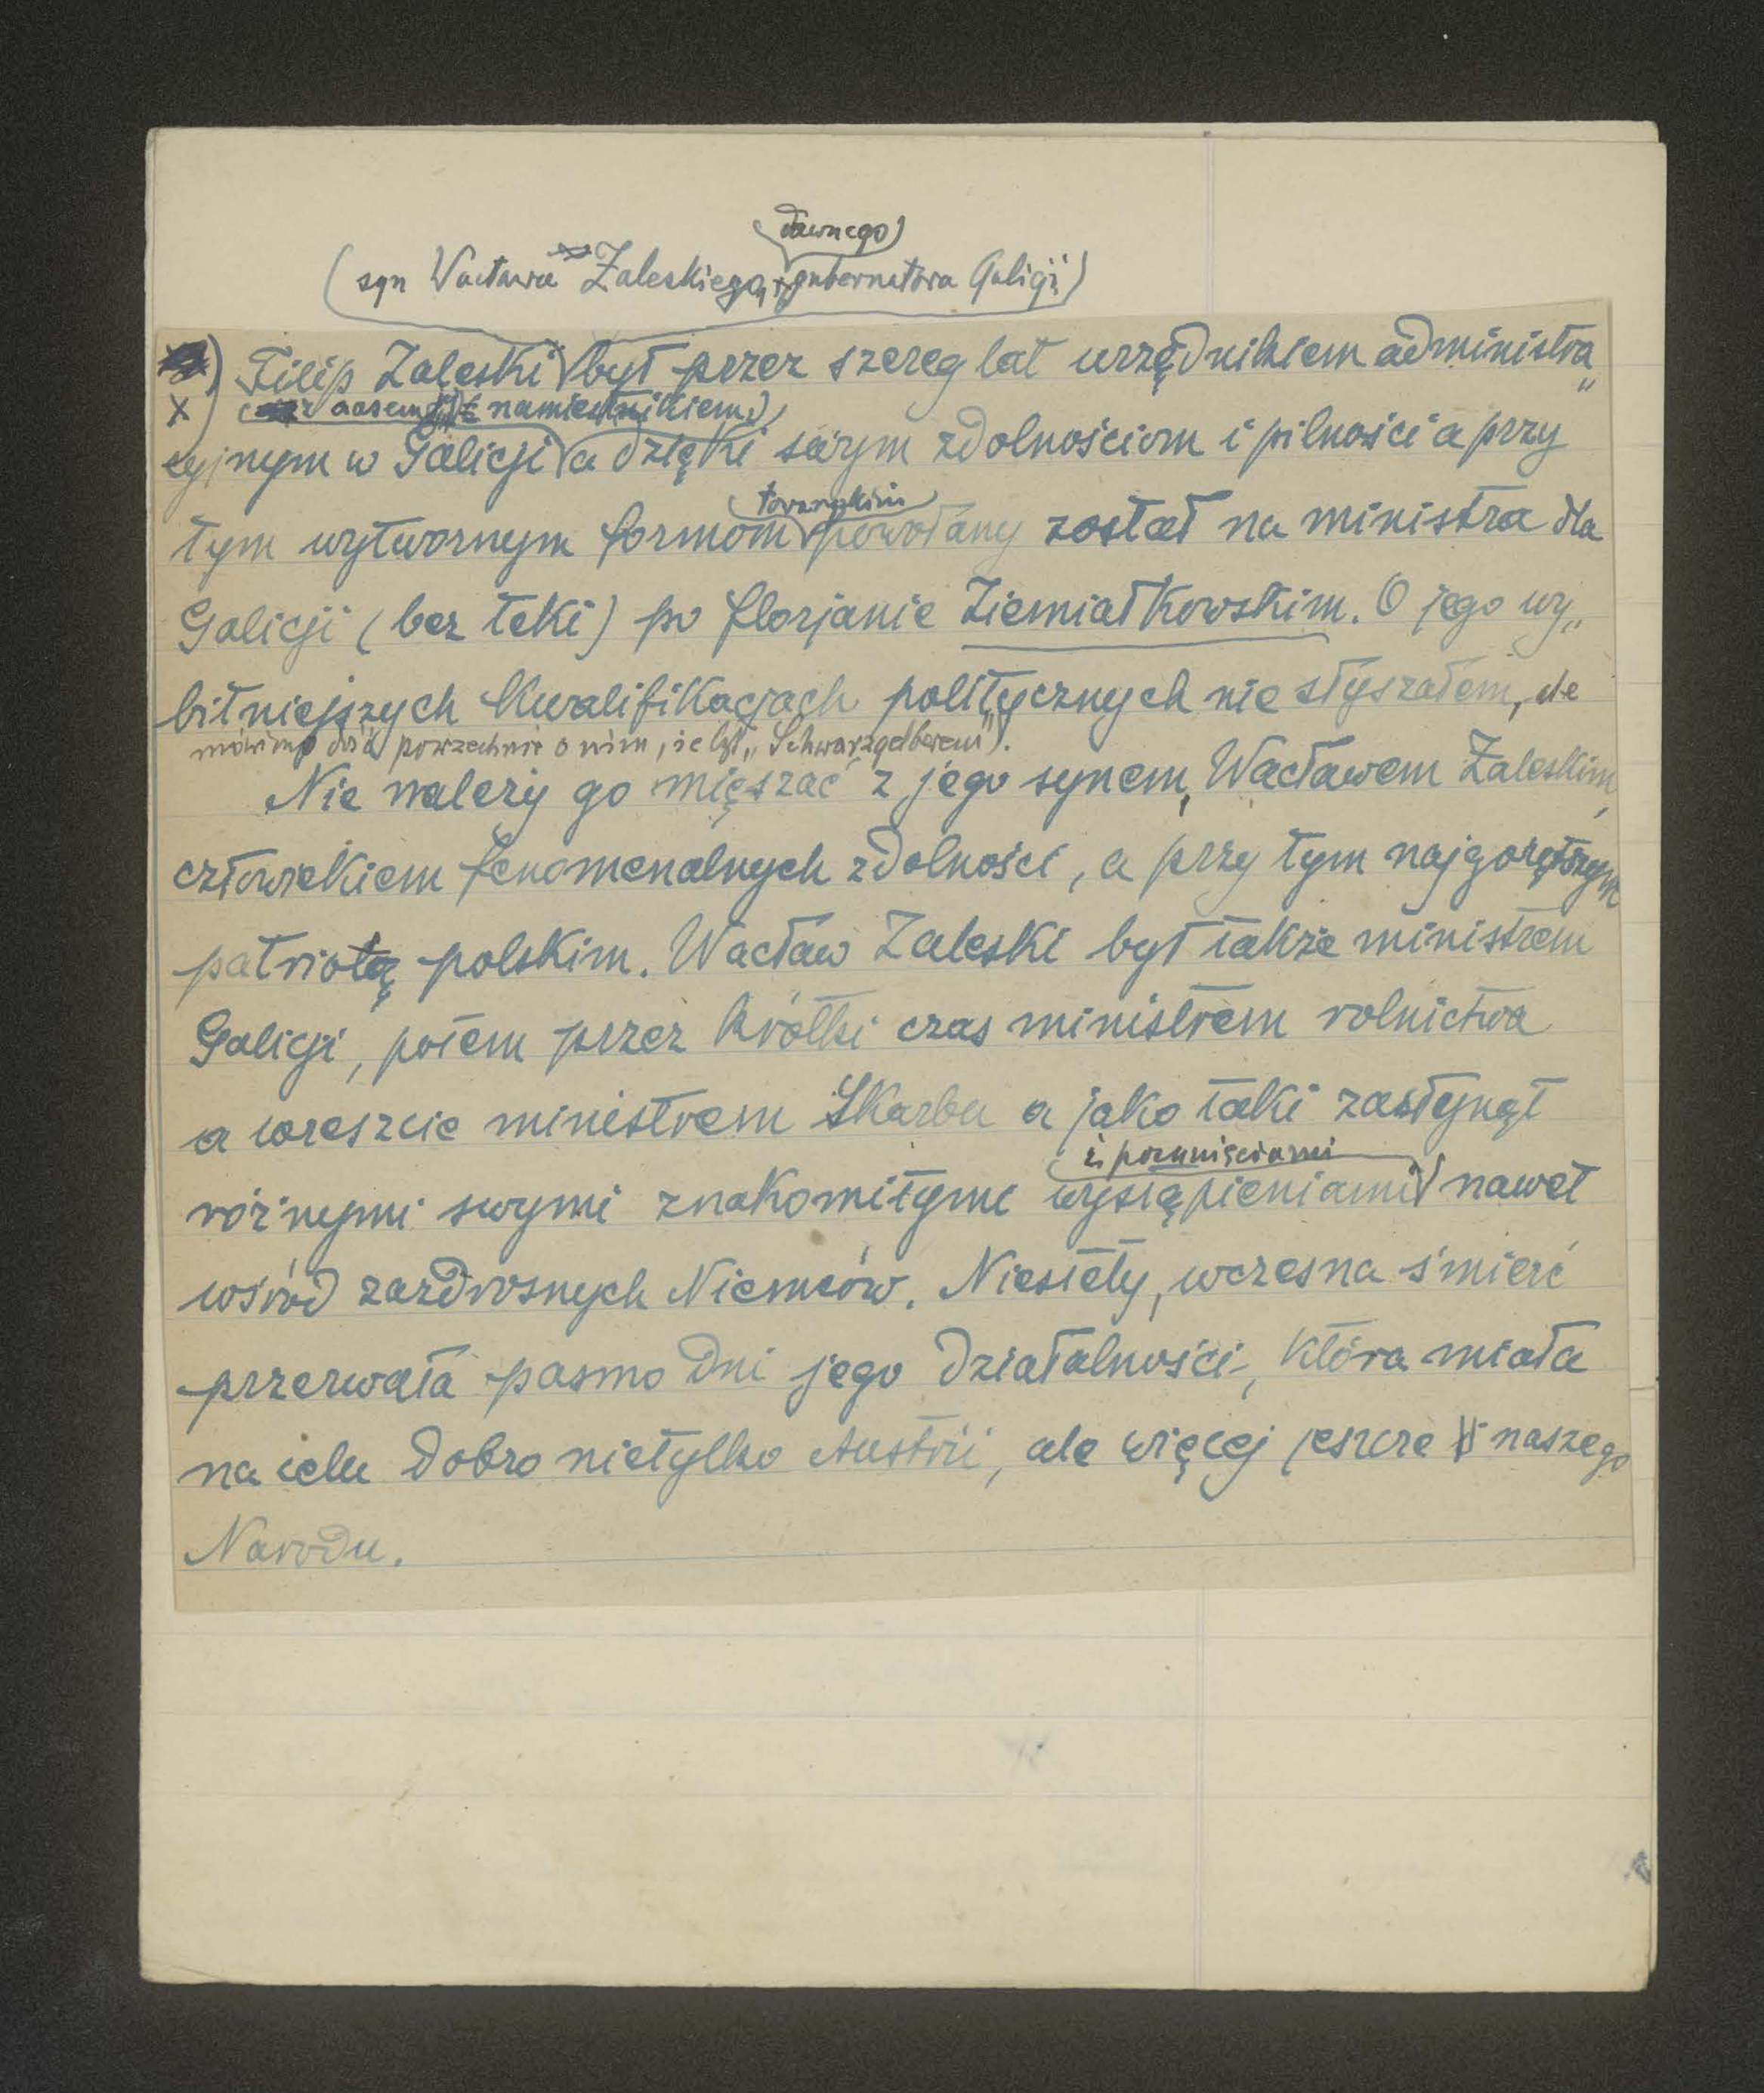 dawnego
(syn Wacława Zaleskiego, gubernatora Galicji)
x) Filip Zaleski był przez szereg lat urzędnikiem administra„
(z czasem namiestnikiem)
cyjnym w Galicji a dzięki swym zdolnościom i pilności a przy
towarzyskim
tym wytwornym formom powołany został na ministra dla
Galicji (bez teki) po Florjanie Ziemiałkowskim. O jego wy„
bitniejszych kwalifikacjach politycznych nie słyszałem, ale
mówiono dość powszechnie o nim, że był „Schwarzgelberem").
Nie należy go mięszać z jego synem, Wacławem Zaleskim,
człowiekiem fenomenalnych zdolności, a przy tym najgorętszym
patriotą polskim. Wacław Zaleski był także ministrem
Galicji, potem przez krótki czas ministrem rolnictwa
a wreszcie ministrem Skarbu a jako taki zasłynął
i posunięciami
różnymi swymi znakomitymi wystąpieniami nawet
wśród zazdrosnych Niemców. Niestety, wczesna śmierć
przerwała pasmo dni jego działalności, która miała
na celu dobro nietylko Austrii, ale więcej jeszcze naszego
Narodu.